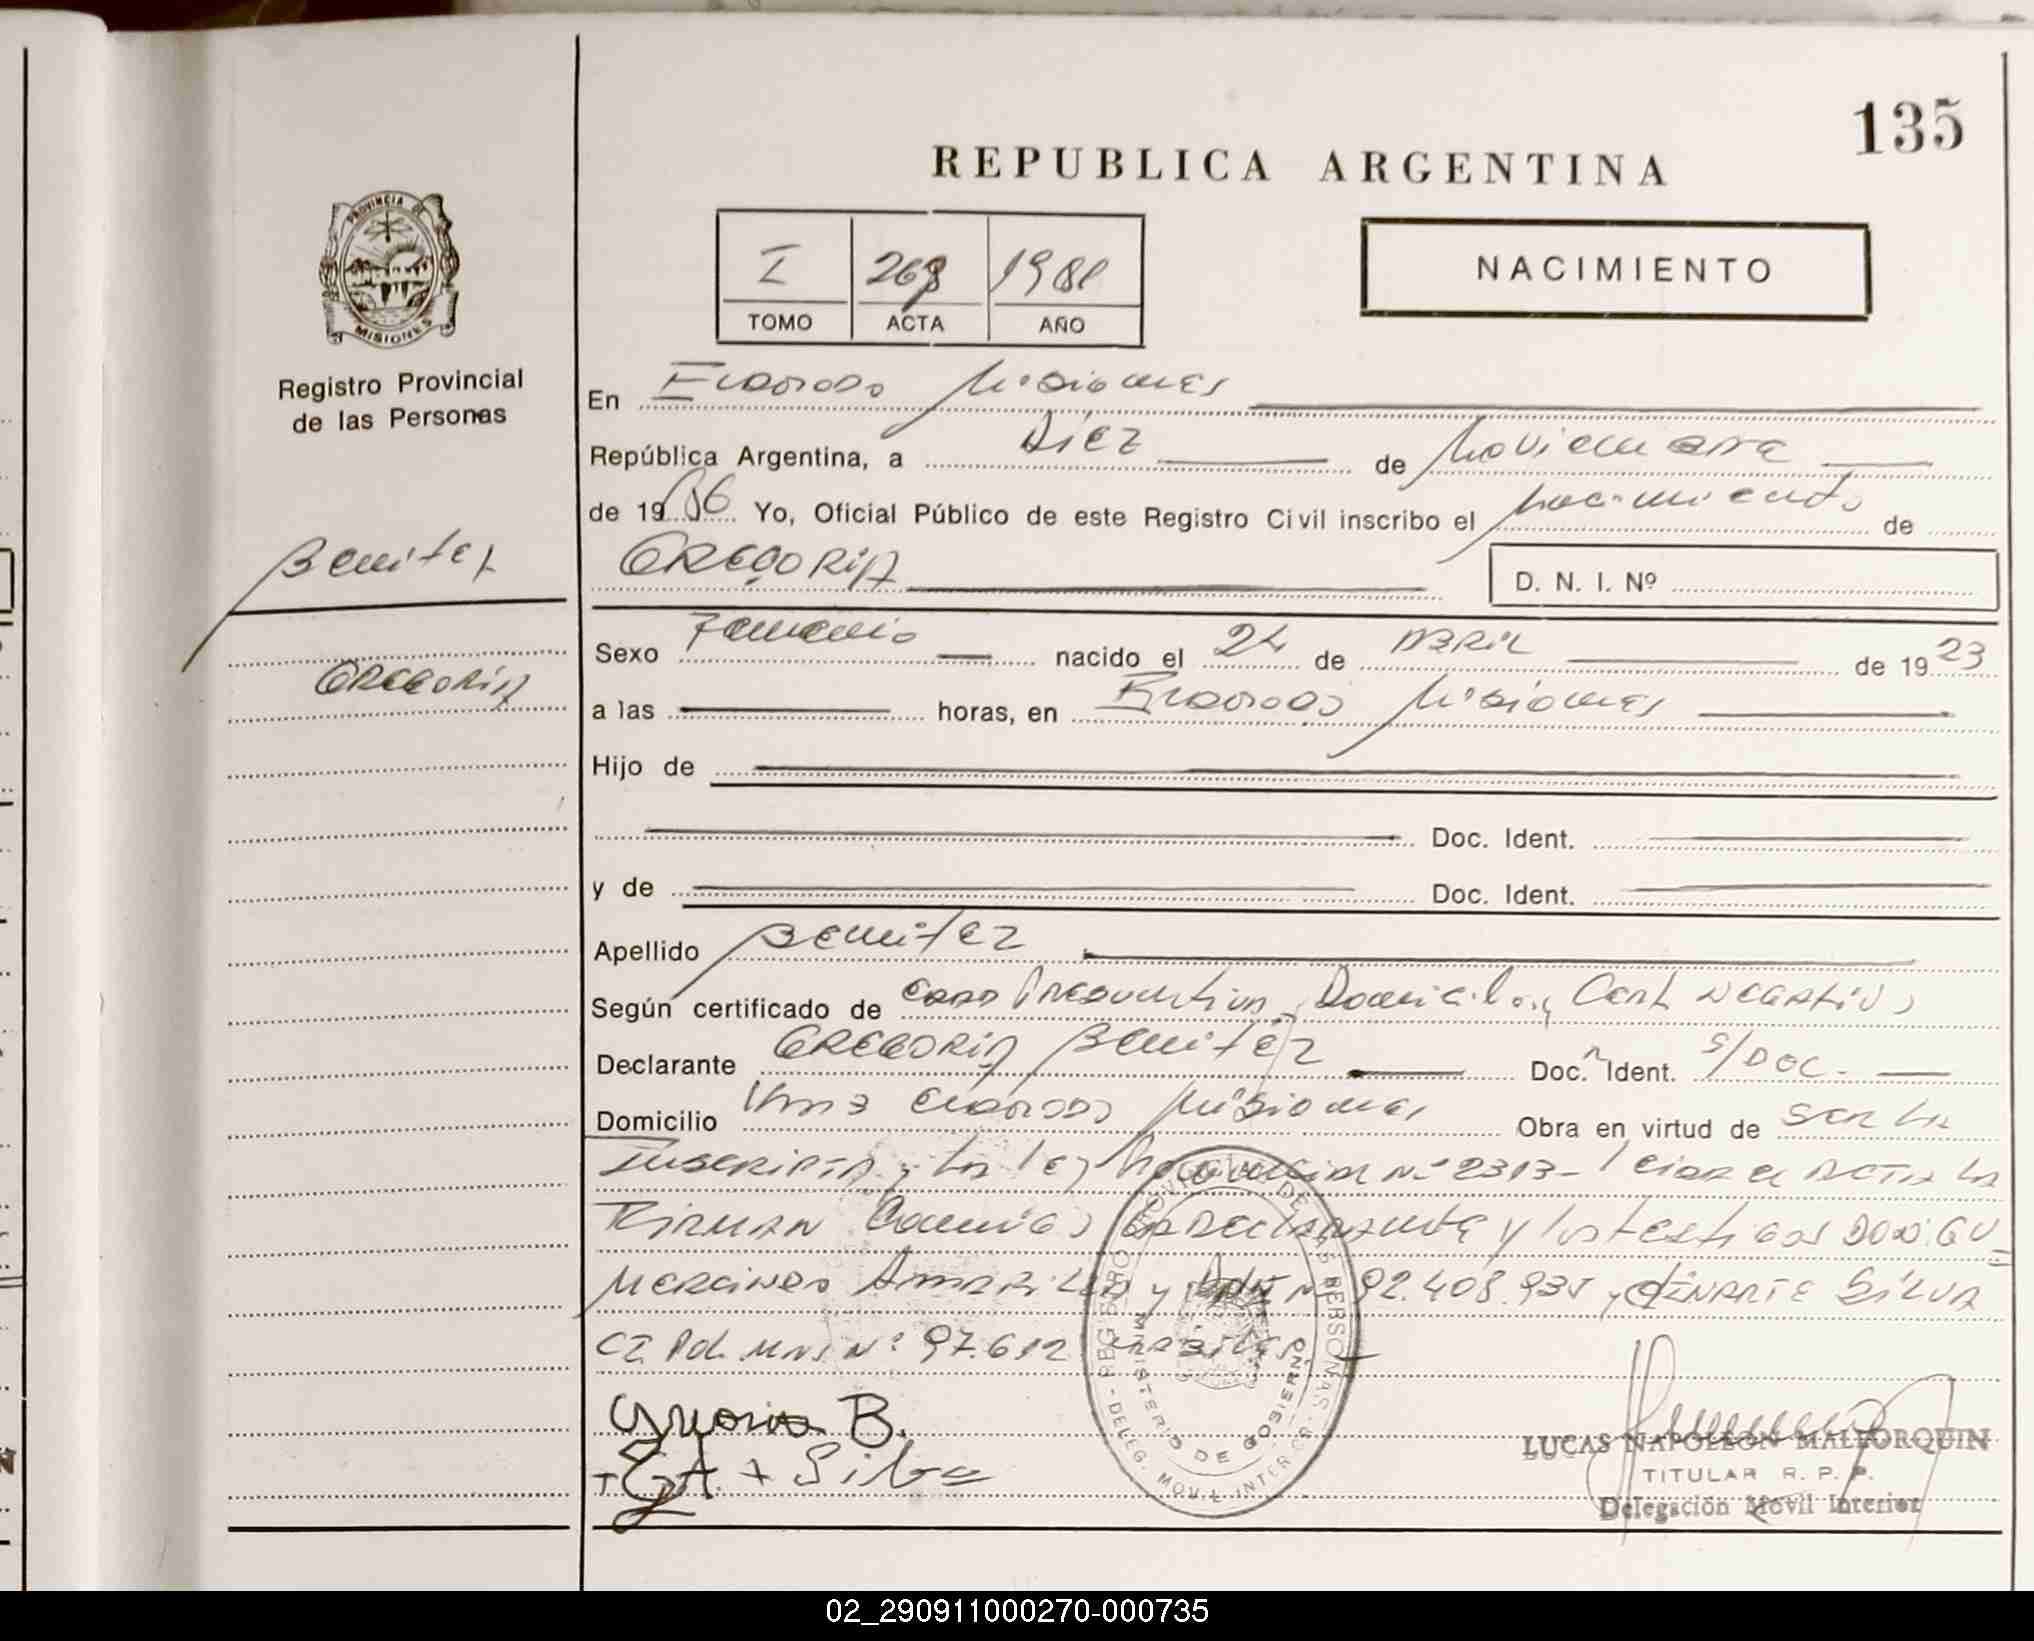 135
REPUBLICA ARGENTINA
I 268 1986
TOMO ACTA AÑO
NACIMIENTO
PROVINCIA DE
MISIONES
Registro Provincial
de las Personas
Benitez
GREGORIA
En Eldorado Misiones
República Argentina, a Diez de Noviembre
de 1986 Yo, Oficial Público de este Registro Civil inscribo el nacimiento de
GREGORIA D. N. I. Nº
Sexo Femenino nacido el 24 de ABRIL de 1923
a las horas, en Eldorado Misiones
Hijo de
Doc. Ident.
y de Doc. Ident.
Apellido Benitez
Según certificado de Edad Presuntiva, Domicilio y Cert Negativo
Declarante GREGORIA Benitez Doc. Ident. S/DOC.
Domicilio Eldorado Misiones Obra en virtud de SER LA
Inscripta y la ley Provincial Nº 2313- leida el ACTA LA
FIRMAN Conmigo la DECLARANTE y los testigos DON GU=
MERCINDO AMARILLA Nº 92.408.935 y SILVA
CI Pol. MNS Nº 97.612 habiles
Gregoria B.
+ G A + Silva
REGISTRO PROVINCIAL DE LAS PERSONAS - DELEG. MOVIL INTERIOR
MINISTERIO DE GOBIERNO
LUCAS NAPOLEON MALLORQUIN
TITULAR R. P. P.
Delegación Móvil Interior
02_290911000270-000735